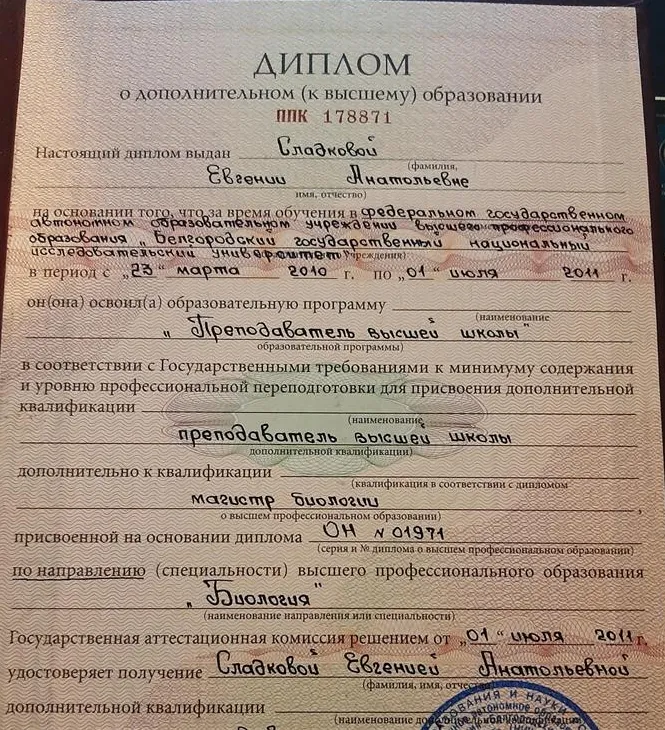 ДИПЛОМ
о дополнительном (к высшему) образовании
ППК 178871
Настоящий диплом выдан Сладковой
(фамилия,
Евгении Анатольевне
имя, отчество)
на основании того, что за время обучения в федеральном государственном
автономном образовательном учреждении высшего профессионального
образования „Белгородский государственный национальный
исследовательский университет"
учреждения)
в период с „23" марта 2010 г. по „01" июля 2011 г.
он(она) освоил(а) образовательную программу
(наименование
„Преподаватель высшей школы"
образовательной программы)
в соответствии с Государственными требованиями к минимуму содержания
и уровню профессиональной переподготовки для присвоения дополнительной
квалификации
(наименование
преподаватель высшей школы
дополнительной квалификации)
дополнительно к квалификации
(квалификация в соответствии с дипломом
магистр биологии,
о высшем профессиональном образовании)
присвоенной на основании диплома ОН N 01971
(серия и № диплома о высшем профессиональном образовании)
по направлению (специальности) высшего профессионального образования
„Биология"
(наименование направления или специальности)
Государственная аттестационная комиссия решением от „01" июля 2011 г.
удостоверяет получение Сладковой Евгенией Анатольевной
(фамилия, имя, отчество)
дополнительной квалификации
(наименование дополнительной квалификации)
ОВАНИЯ И НАУКИ